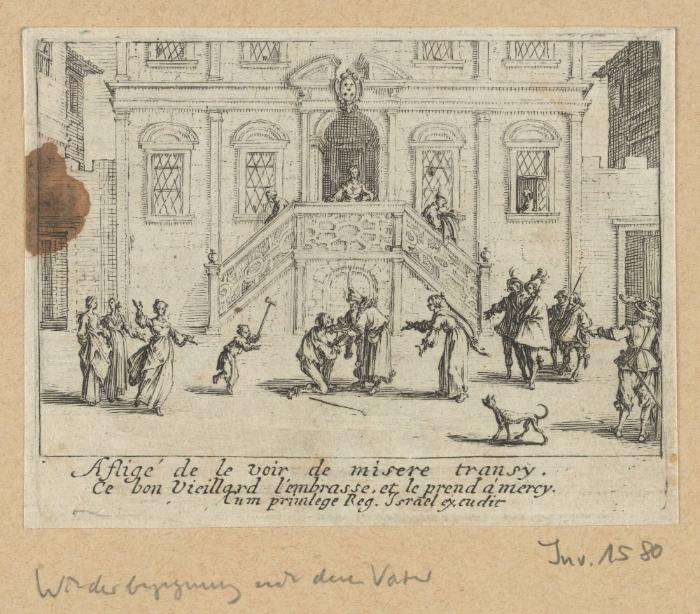 Afligé de le voir de misere transy.
Ce bon Vieillard l'embrasse, et le prend á mercy.
Cum privilege Reg. Israel excudit
Inv. 1580
Wiederbegegnung mit dem Vater